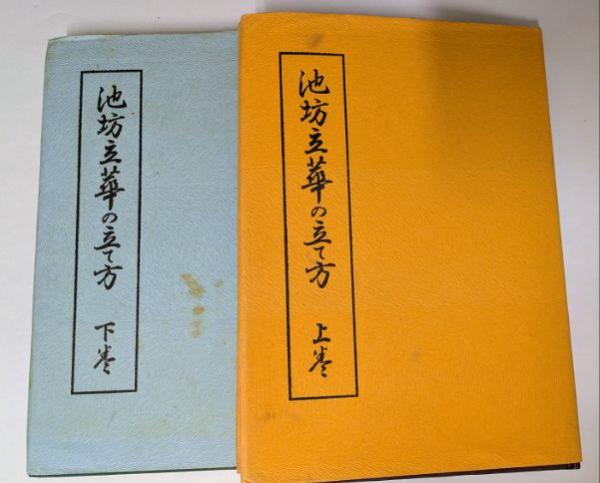 池坊立華の立て方 上巻
池坊立華の立て方 下巻